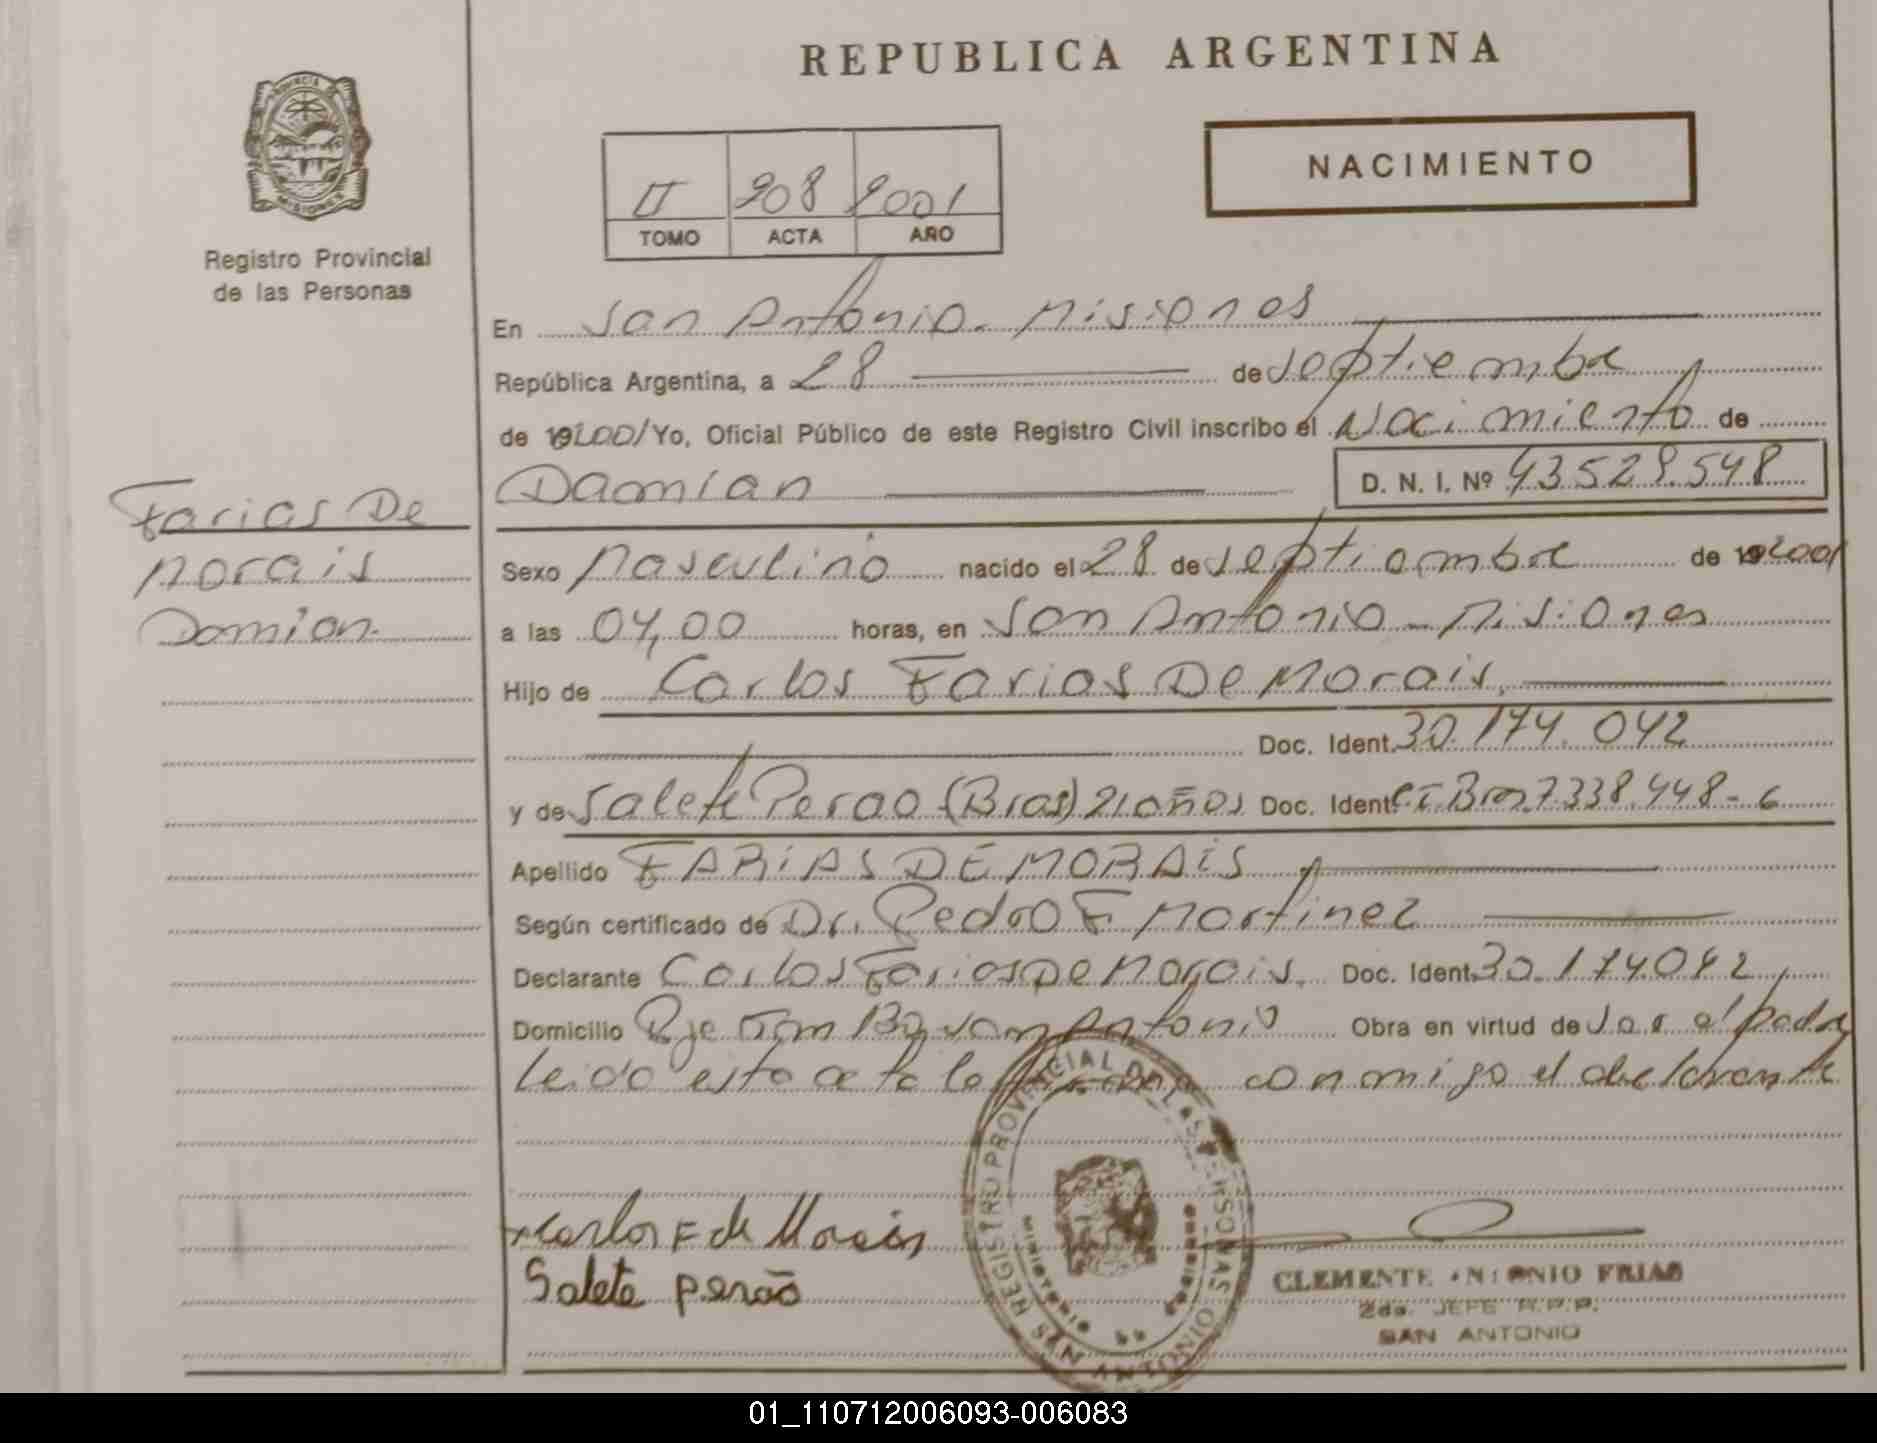 REPUBLICA ARGENTINA
NACIMIENTO
II 208 2001
TOMO ACTA AÑO
Registro Provincial
de las Personas
En San Antonio - Misiones
República Argentina, a 28 de Septiembre
de 192001 Yo, Oficial Público de este Registro Civil inscribo el Nacimiento de
Damian D. N. I. Nº 43.529.548
Farias De
Morais
Damian.
Sexo Masculino nacido el 28 de Septiembre de 192001
a las 04,00 horas, en San Antonio - Misiones
Hijo de Carlos Farias De Morais.
Doc. Ident. 30.174.042
y de Salete Perao (Bras) 21 años Doc. Ident. CI Bras 7.338.448-6
Apellido FARIAS DE MORAIS
Según certificado de Dr. Pedro F Martinez
Declarante Carlos Farias De Morais. Doc. Ident. 30.174042
Domicilio San Antonio Obra en virtud de Ser el padre
Leido esta acta la conmigo el declarante
Carlos F de Morais
Salete perão
REGISTRO PROVINCIAL DE LAS PERSONAS
MISIONES
SAN ANTONIO
CLEMENTE ANTONIO FRIAS
2do. JEFE R.P.P.
SAN ANTONIO
01_110712006093-006083